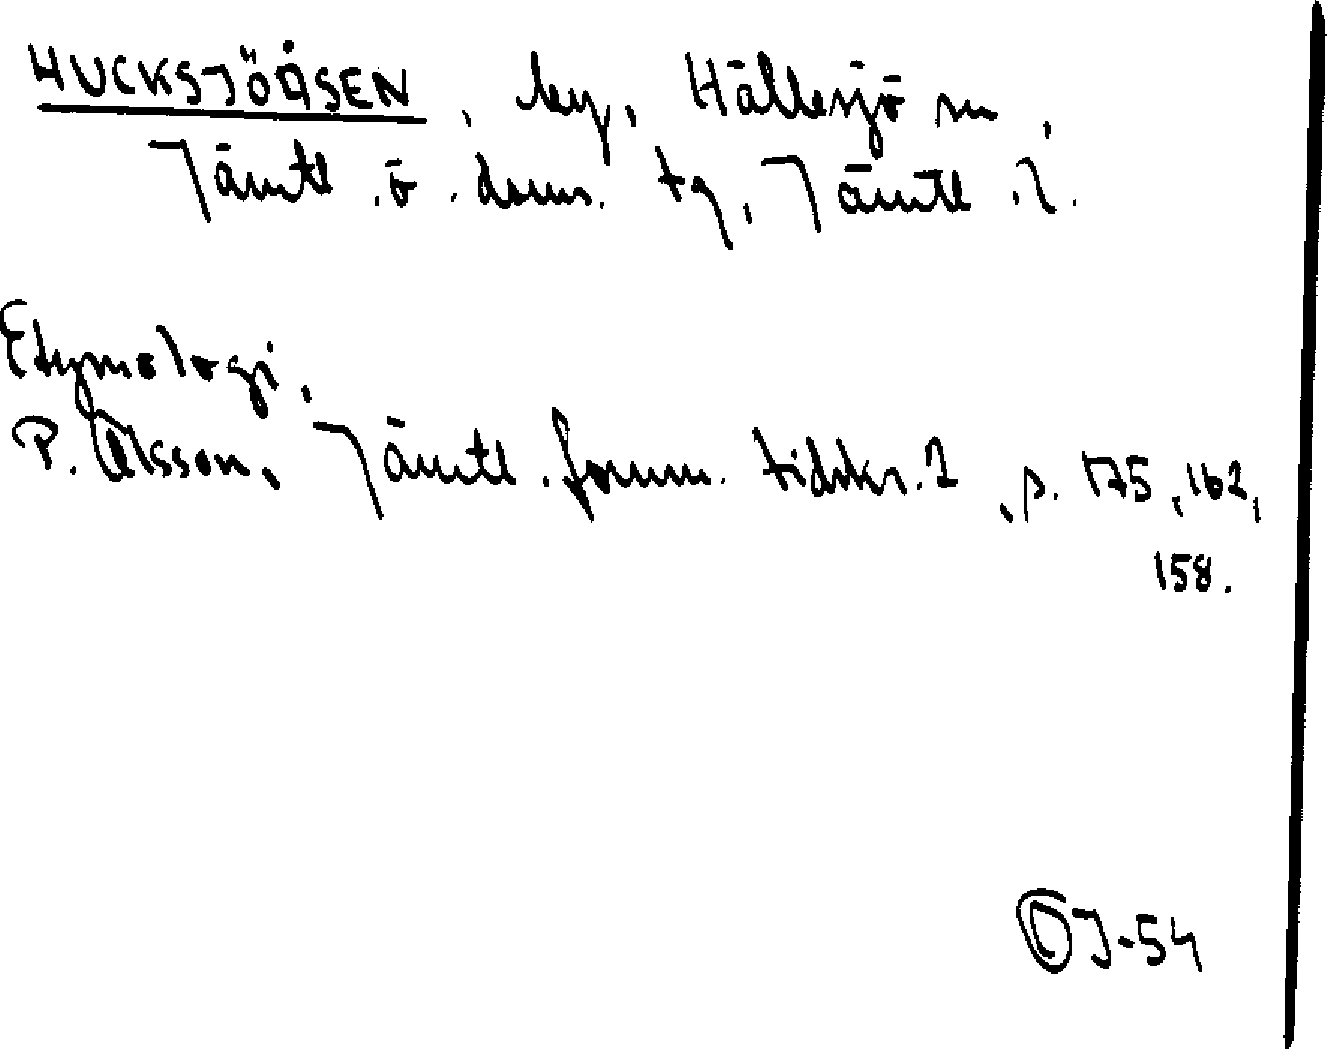 HUCKSJÖÅSEN, by, Hällesjö sn,
Jämtl. ö. doms. tg, Jämtl. l.
Etymologi.
P. Olsson, Jämtl. fornm. tidskr. 2, s. 175, 162,
158.
OJ-54